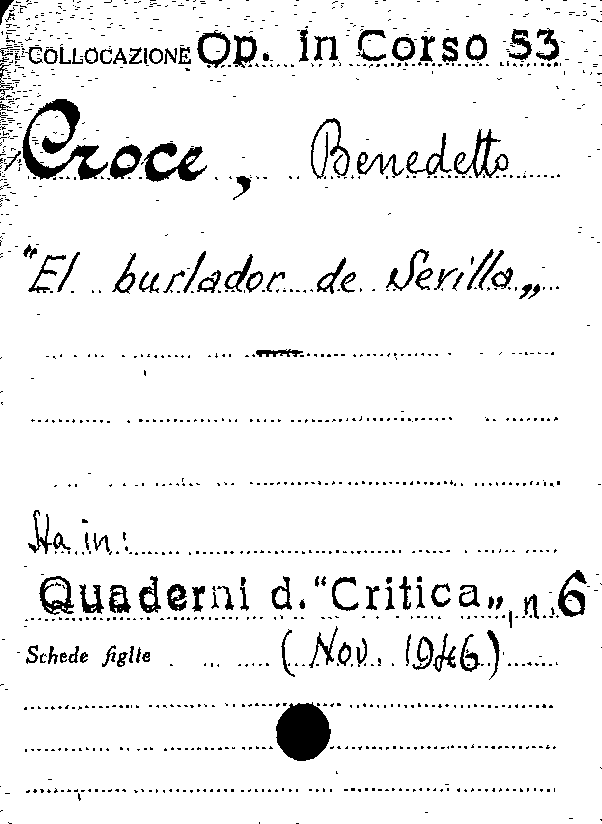 COLLOCAZIONE Op. in Corso 53
Croce, Benedetto
"El burlador de Sevilla„
Sta in:
Quaderni d. "Critica„, n. 6
Schede figlie (Nov. 1946)